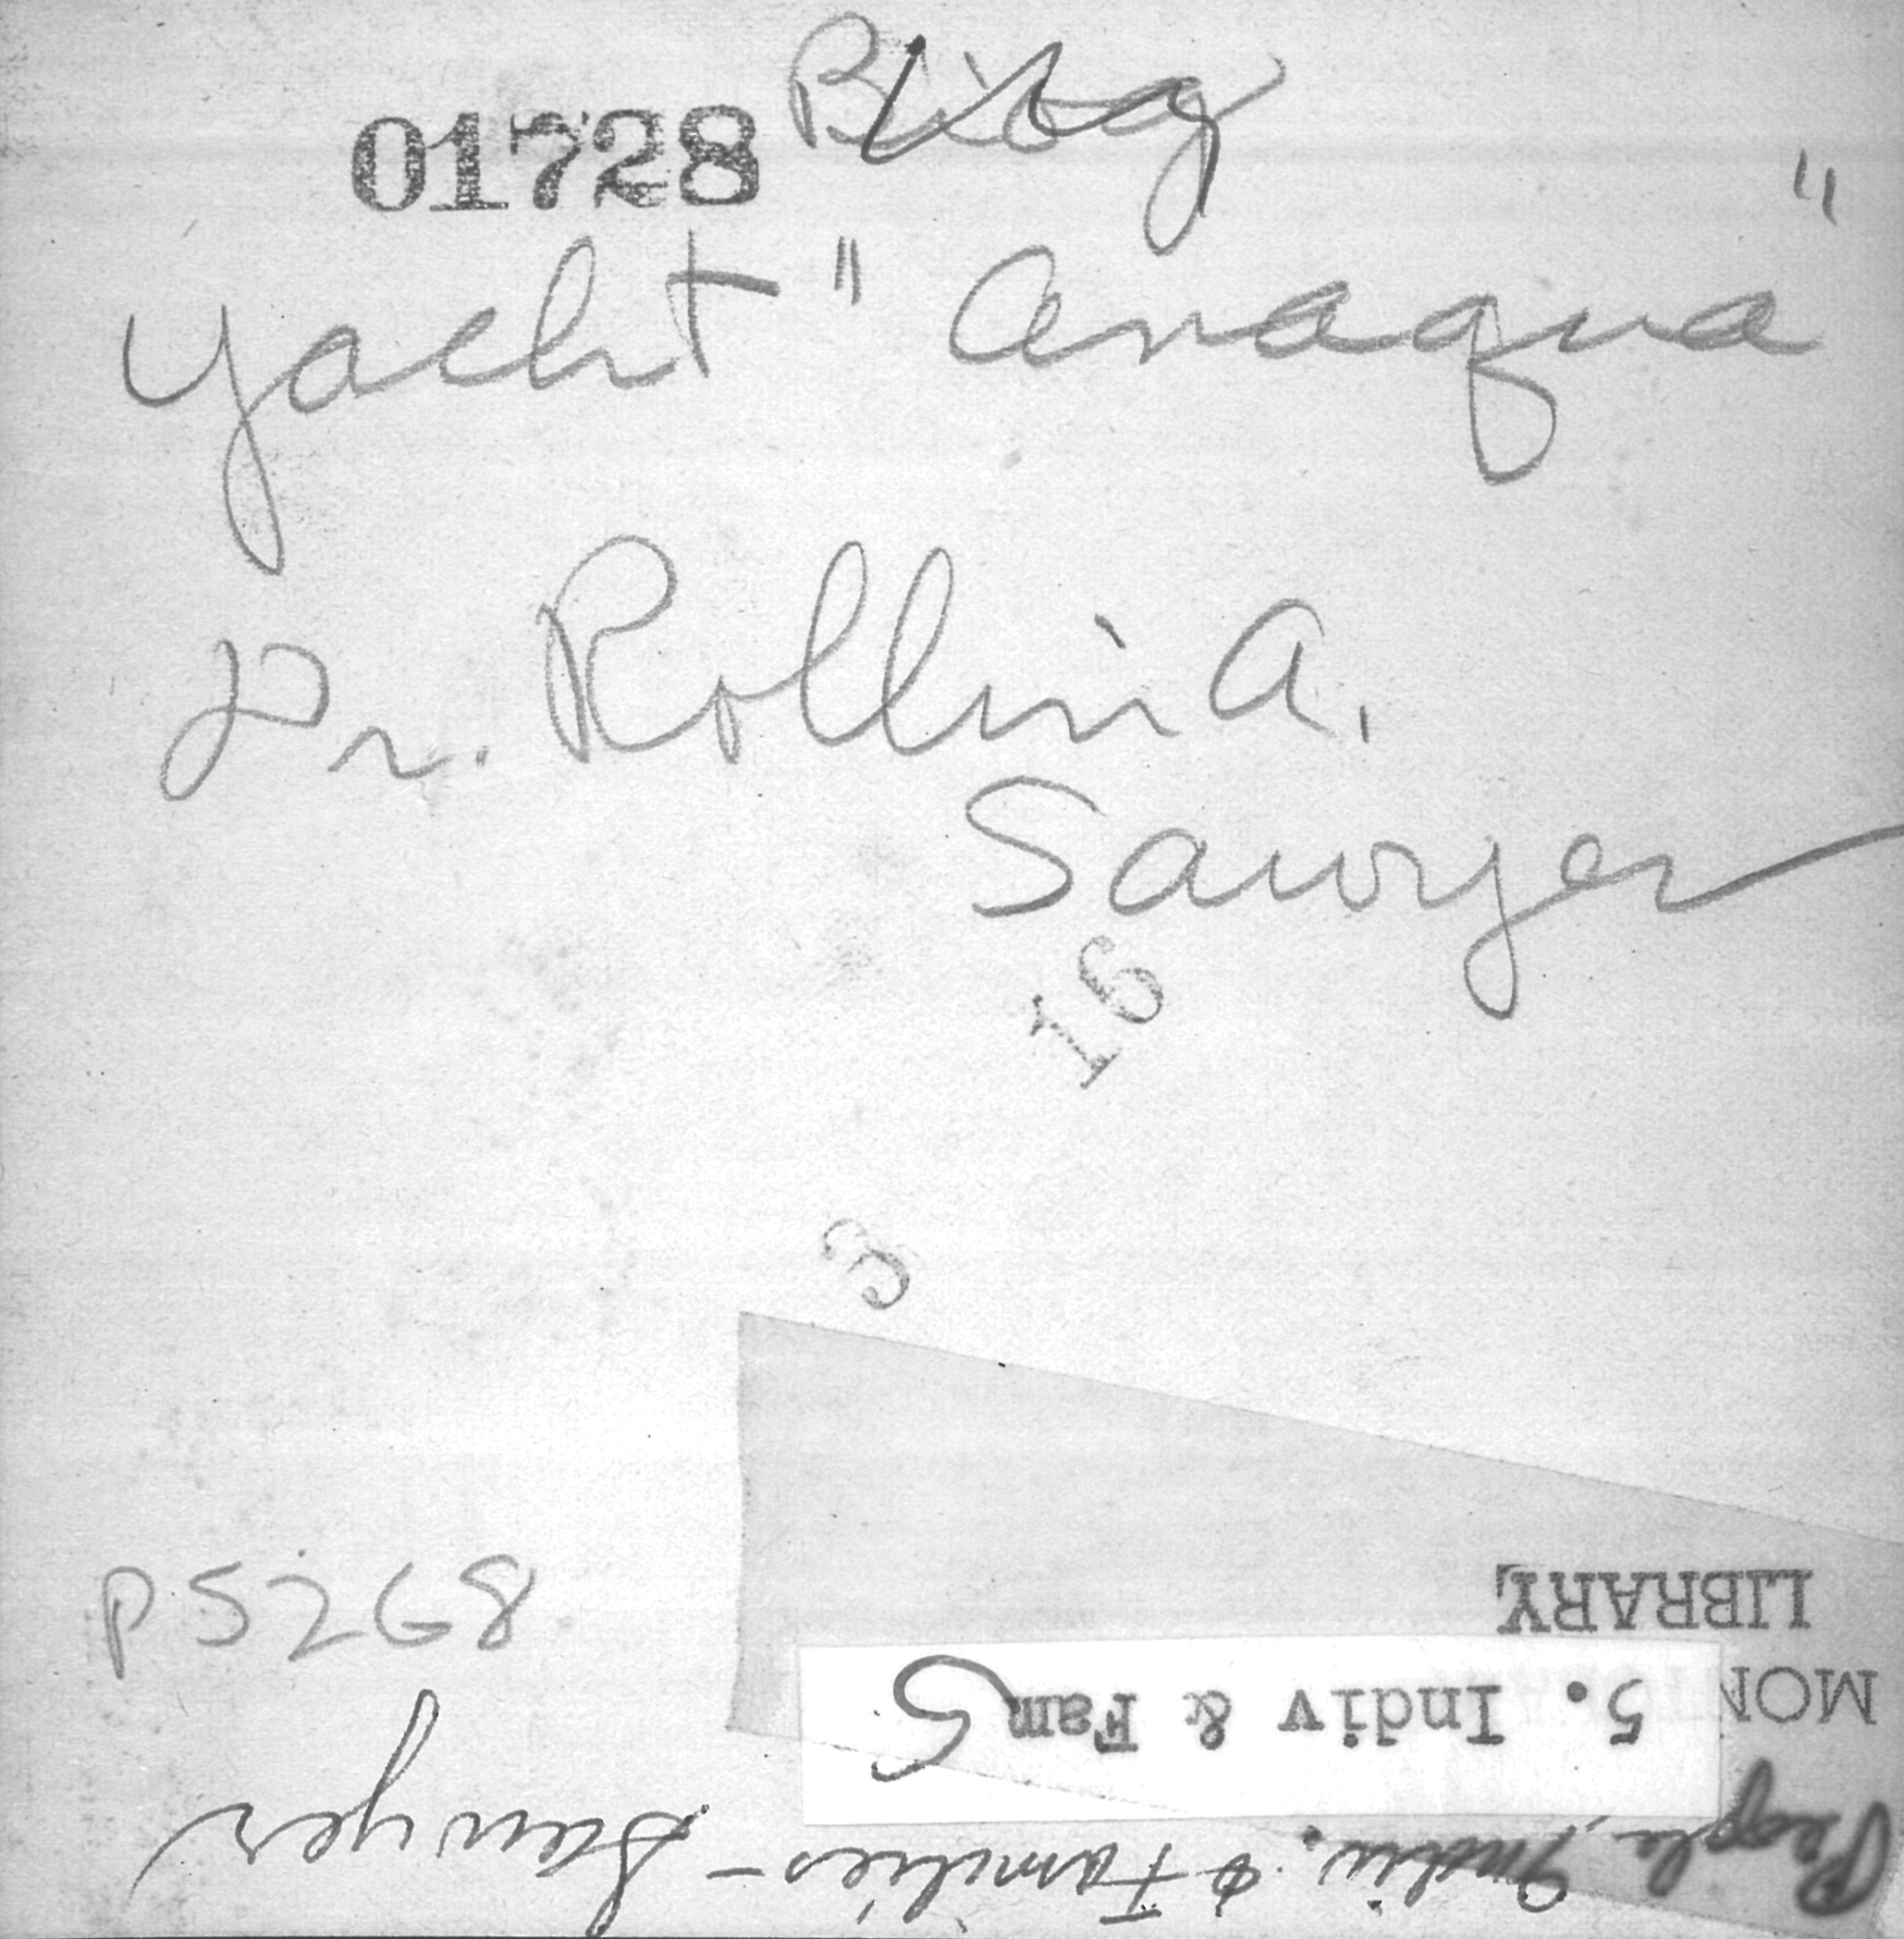 Biog
01728
yacht "Anaqua"
Dr. Rollin A.
Sawyer
16
3
P 5268
People, Indiv. & Families - Sawyer
5. Indiv & Fam 5
LIBRARY